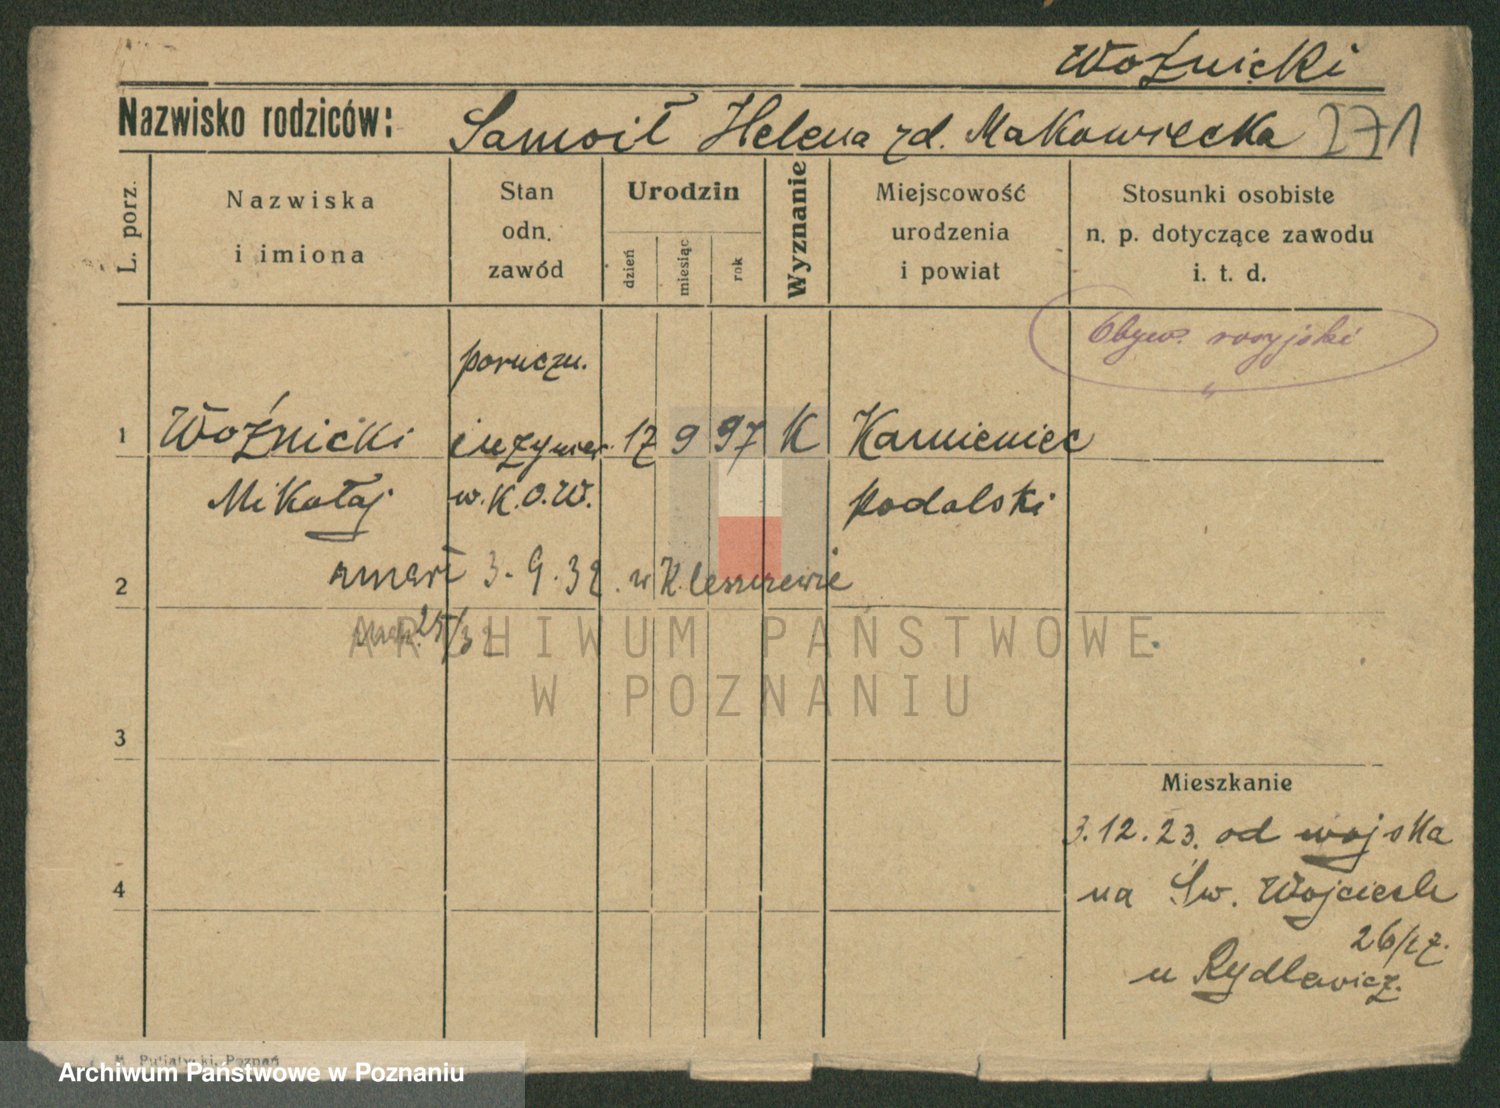 Woźnicki
Nazwisko rodziców: Samoił Helena zd. Makowiecka 271
L. porz.
Nazwiska
i imiona
Stan
odn.
zawód
Urodzin
dzień
miesiąc
rok
Wyznanie
Miejscowość
urodzenia
i powiat
Stosunki osobiste
n. p. dotyczące zawodu
i. t. d.
Obyw. rosyjski
poruczn.
1 Woźnicki inżynier. 17 9 97 K Kamieniec
Mikołaj w. K. O. W. Podolski
2 zmarł 3. 9. 32. w Kleszczewie
25/32
ARCHIWUM PAŃSTWOWE
W POZNANIU
3
Mieszkanie
3.12.23. od wojska
4 na Św. Wojciech
26/27.
u Rydlewicz.
M. Putiatycki, Poznań
Archiwum Państwowe w Poznaniu